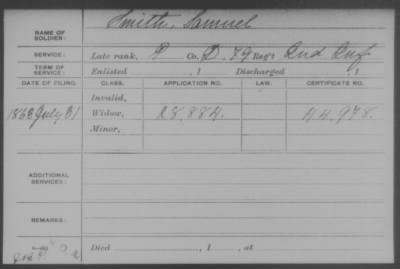 NAME OF SOLDIER: Smith, Samuel
SERVICE: Late rank, P Co. D. 79 Reg't Ind Inf
TERM OF SERVICE: Enlisted , 1 Discharged , 1
DATE OF FILING. CLASS. APPLICATION NO. LAW. CERTIFICATE NO.
Invalid,
1863 July 31 Widow, 28.884. 44.978.
Minor,
ADDITIONAL SERVICES:
REMARKS:
Died , 1 , at